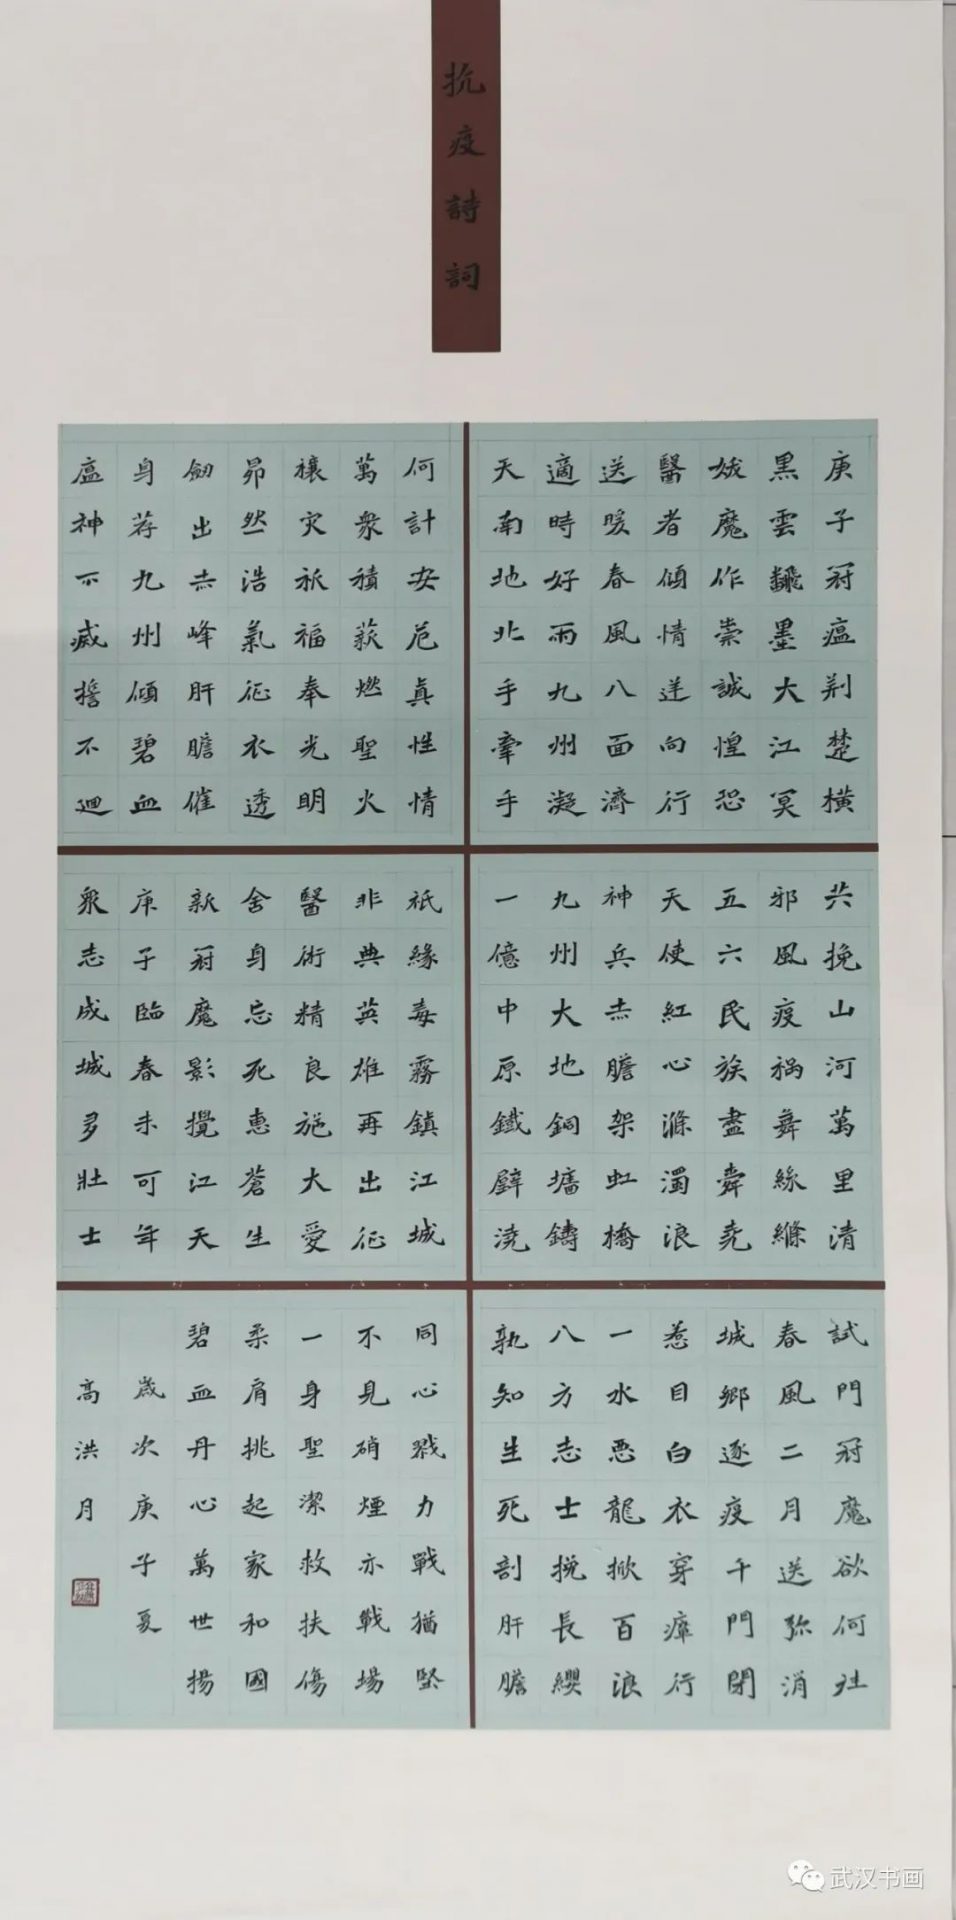 抗疫詩詞
庚子冠瘟荆楚橫
黑雲翻墨大江冥
妖魔作祟誠惶恐
醫者傾情逆向行
送暖春風八面濟
適時好雨九州凝
天南地北手牽手
何計安危真性情
萬衆積薪燃聖火
禳灾祈福奉光明
昂然浩氣征衣透
劍出赤峰肝膽催
身荐九州傾碧血
瘟神不滅誓不迴
共挽山河萬里清
邪風疫禍舞絲縧
五六民族盡舜堯
天使紅心滌濁浪
神兵赤膽架虹橋
九州大地銅墻鑄
一億中原鐵壁澆
祇緣毒霧鎮江城
非典英雄再出征
醫術精良施大愛
舍身忘死惠蒼生
新冠魔影攪江天
庚子臨春未可年
衆志成城多壯士
試問冠魔欲何往
春風二月送弥消
城鄉逐疫千門閉
惹目白衣穿瘴行
一水惡龍掀百浪
八方志士挽長纓
孰知生死剖肝膽
同心戮力戰猶堅
不見硝煙亦戰場
一身聖潔救扶傷
柔肩挑起家和國
碧血丹心萬世揚
歲次庚子夏
高洪月
武汉书画